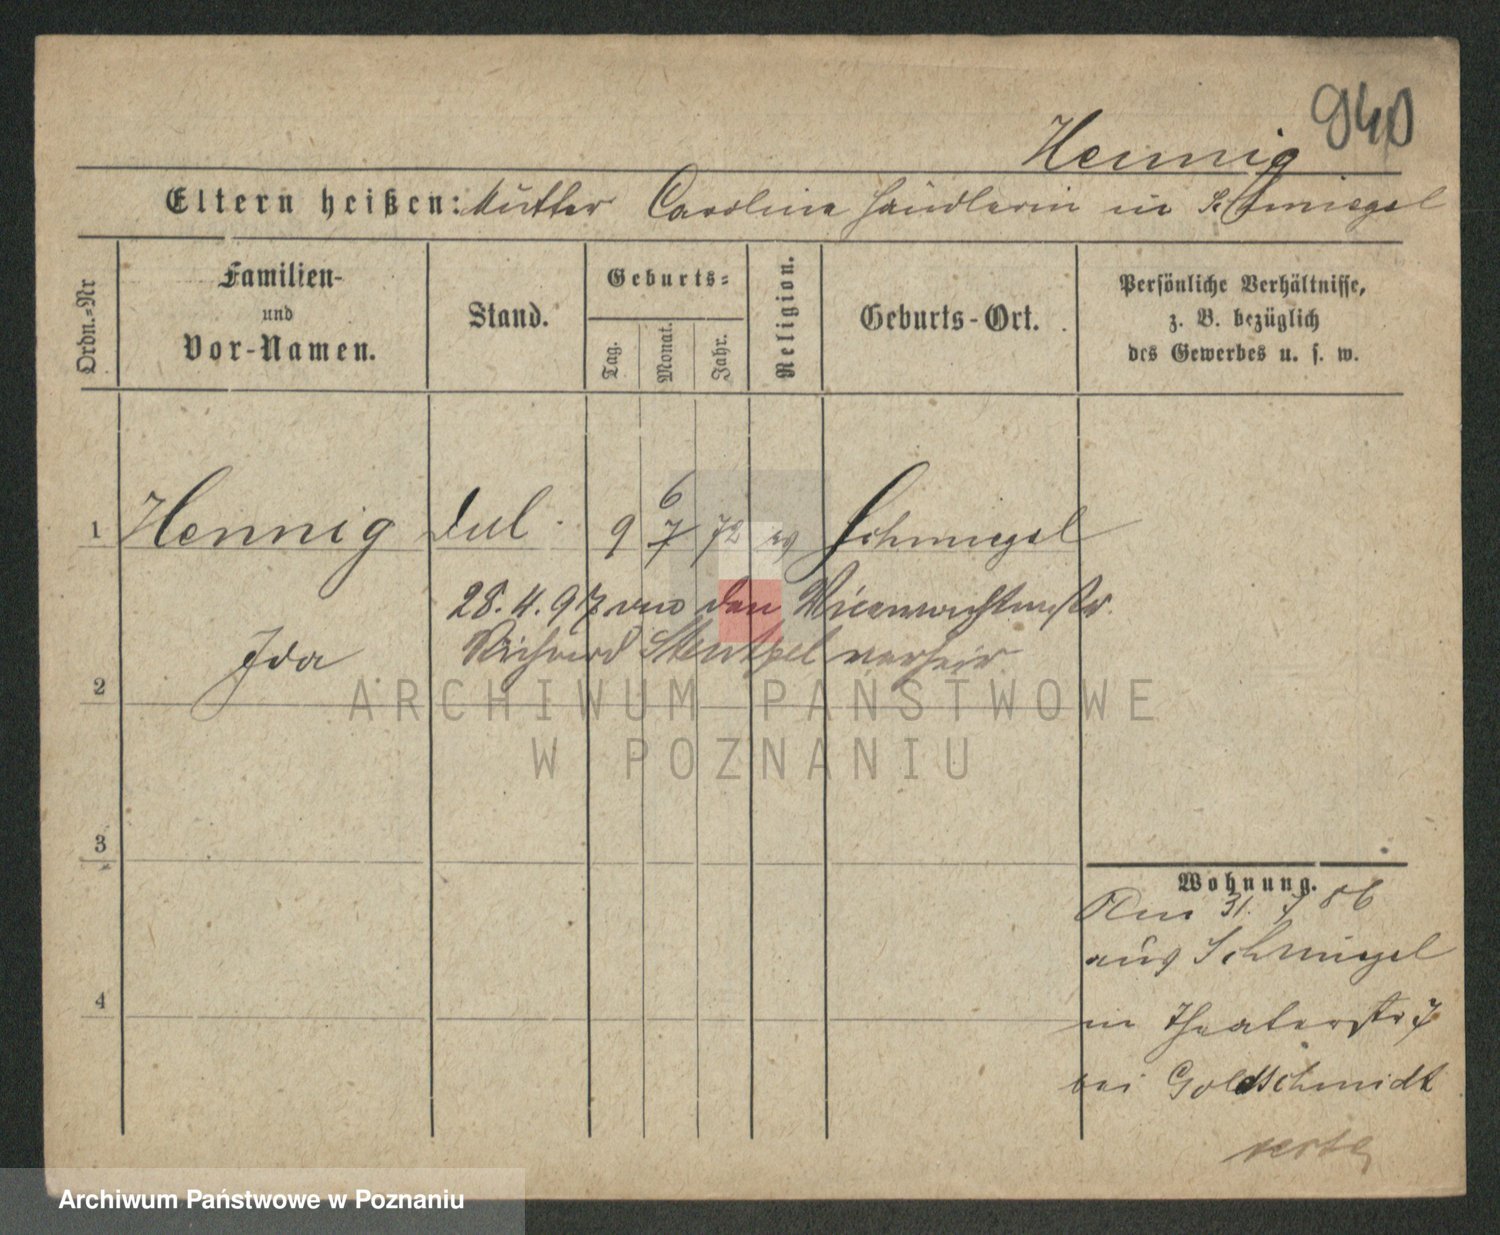 940
Hennig
Eltern heißen: Mutter Caroline Händlerin in Schmiegel
Ordn.=Nr
Familien-
und
Vor-Namen.
Stand.
Geburts=
Tag.
Monat.
Jahr.
Religion.
Geburts-Ort.
Persönliche Verhältnisse,
z. B. bezüglich
des Gewerbes u. s. w.
6
1 Hennig 9 7 72 ev Schmiegel
28.4.97 den Vicewachtmstr.
2 Ida Richard verheir
ARCHIWUM PAŃSTWOWE
W POZNANIU
3
Wohnung.
31. 7 86
aus Schmiegel
4
in Theaterstr 7
bei Goldschmidt
verte
Archiwum Państwowe w Poznaniu